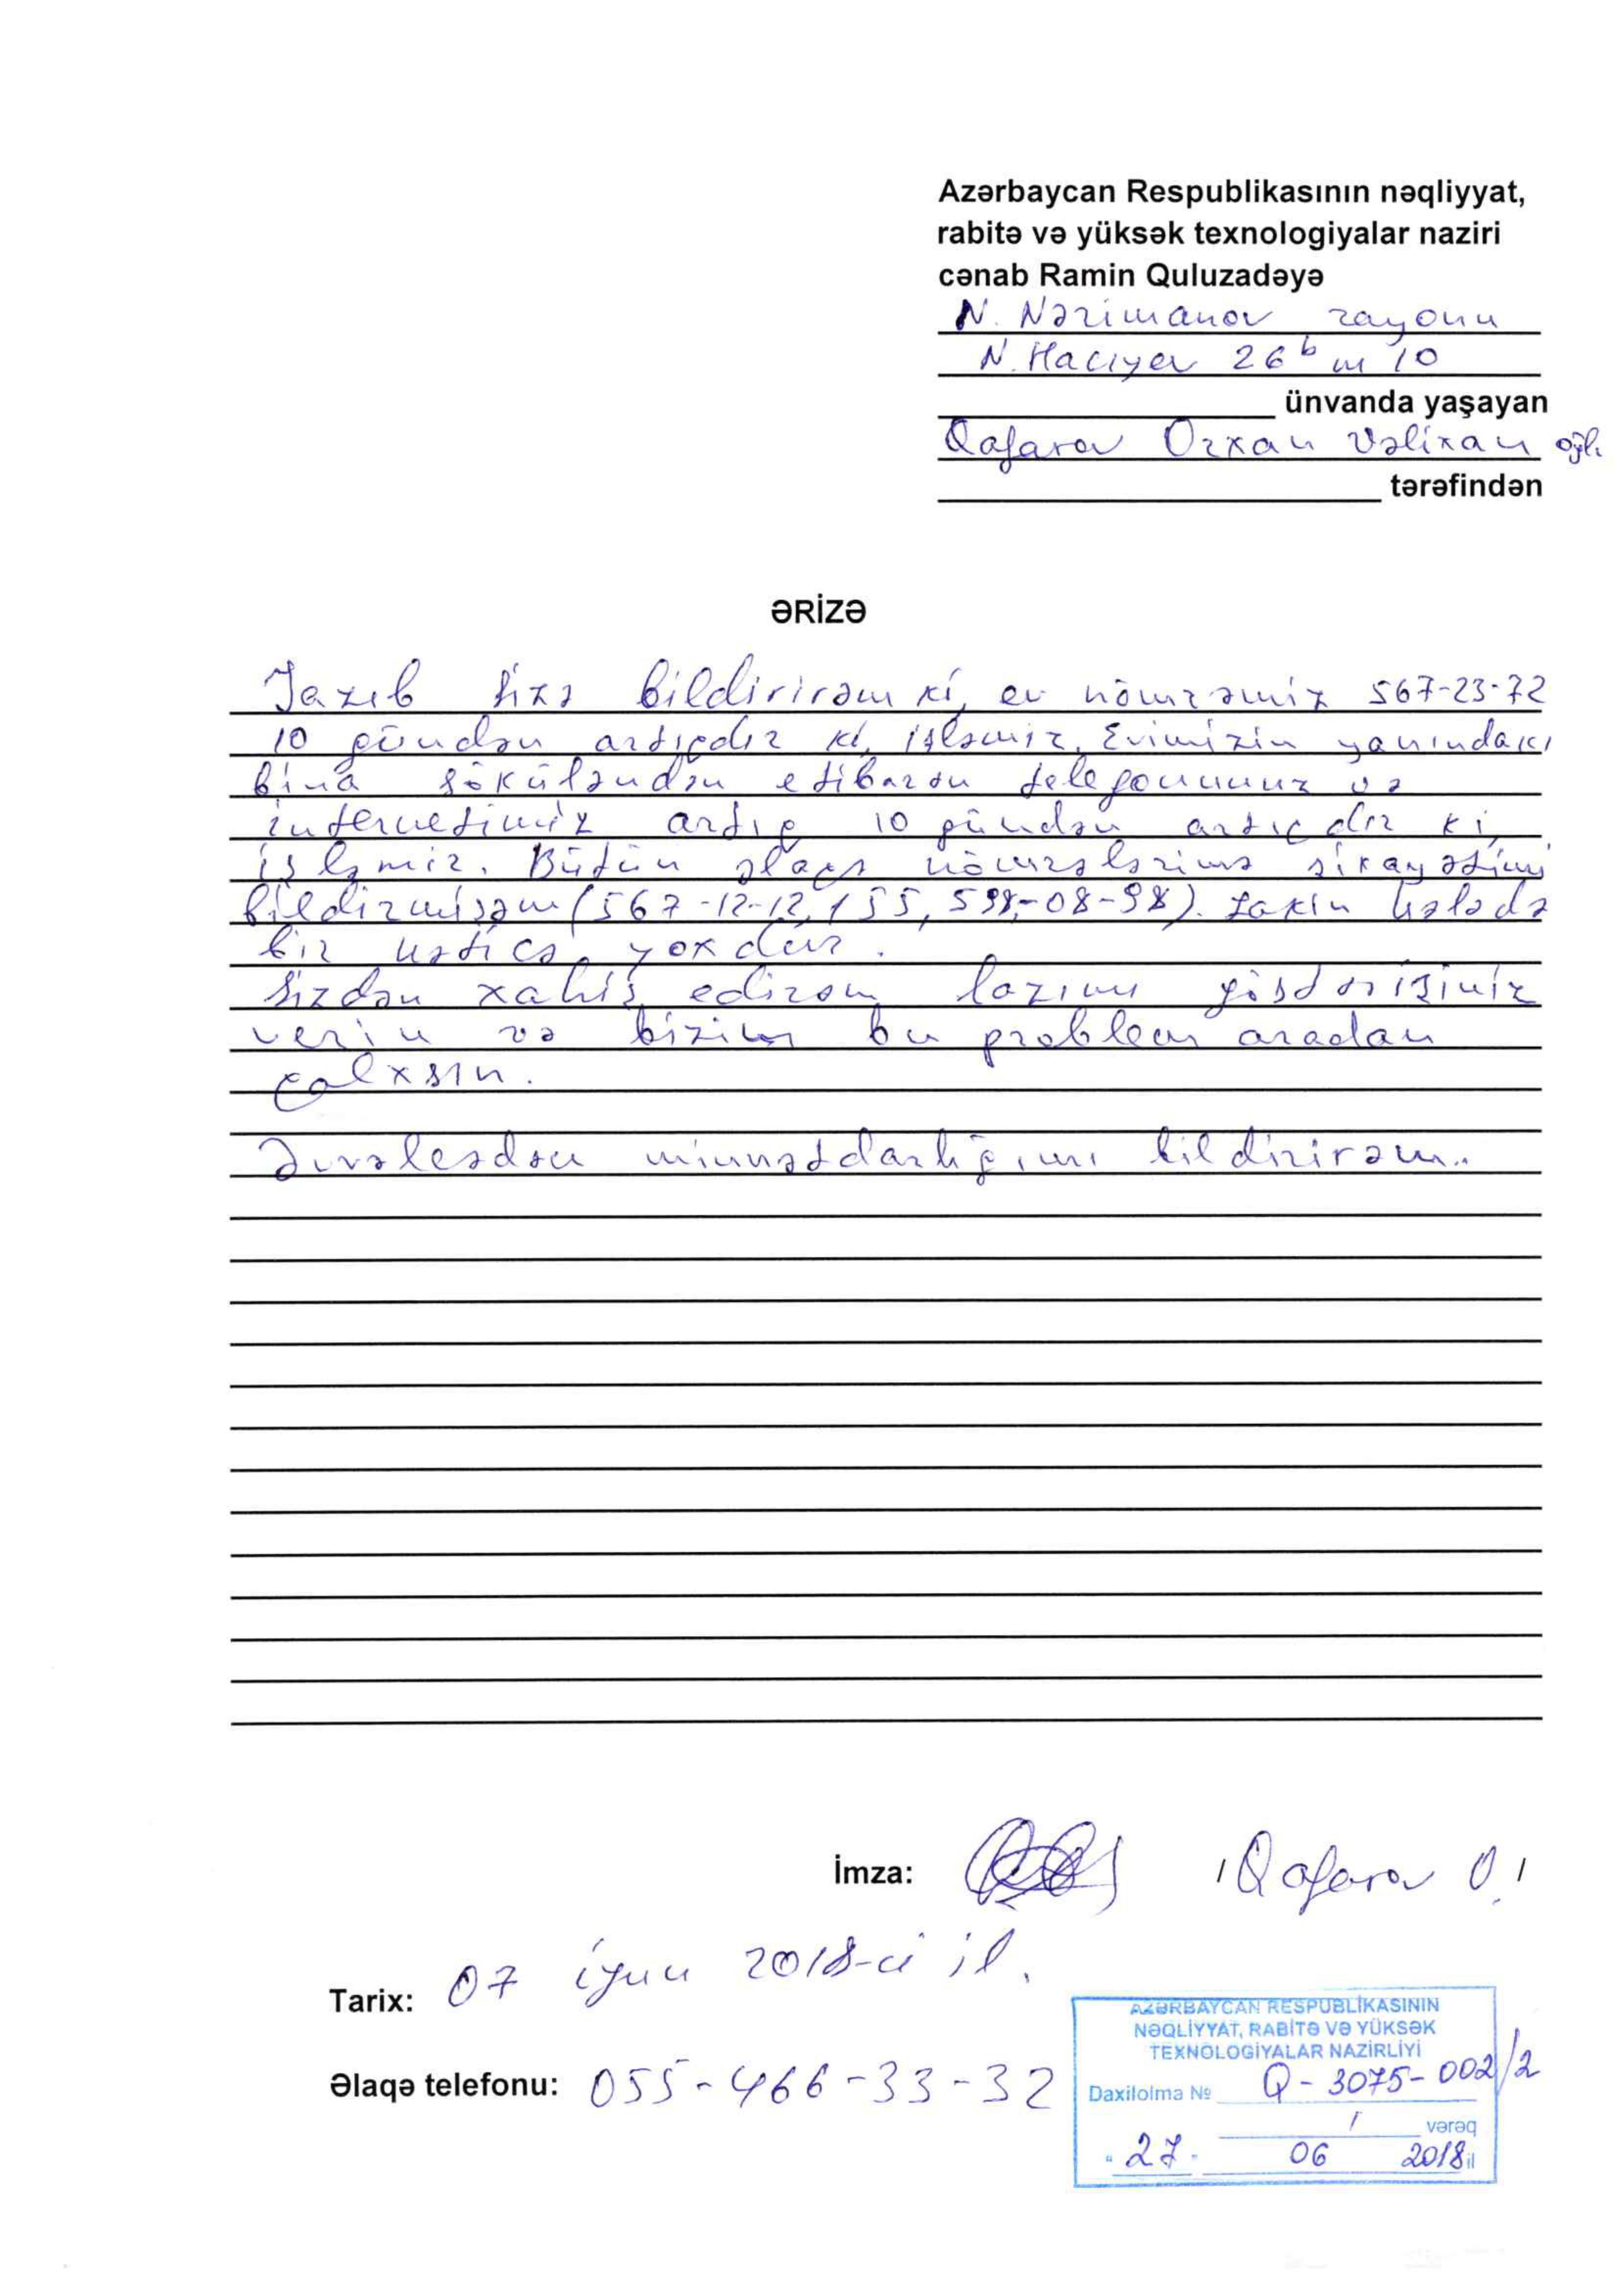 Azərbaycan Respublikasının nəqliyyat,
rabitə və yüksək texnologiyalar naziri
cənab Ramin Quluzadəyə
N. Nərimanov rayonu
N. Hacıyev 26 b m 10
ünvanda yaşayan
Qafarov Orxan Vəlixan oğlı
tərəfindən
ƏRİZƏ
Yazıb Sizə bildirirəm ki, ev nömrəmiz 567-23-72
10 gündən artıqdır ki, işləmir. Evimizin yanındakı
bina sökүləndən etibarən telefonumuz və
internetimiz artıq 10 gündən artıqdır ki,
işləmir. Bütün əlaqə nömrələrinə şikayətimi
bildirmişəm (567-12-12, 155, 598-08-98). Lakin hələdə
bir nəticə yoxdur.
Sizdən xahiş edirəm lazımı göstərişiniz
verin və bizim bu problem aradan
qalxsın.
Əvvəlcədən minnətdarlığımı bildirirəm.
İmza: /Qafarov O./
Tarix: 07 iyun 2018-ci il.
Əlaqə telefonu: 055-466-33-32
AZƏRBAYCAN RESPUBLİKASININ
NƏQLİYYAT, RABİTƏ VƏ YÜKSƏK
TEXNOLOGİYALAR NAZİRLİYİ
Daxilolma № Q-3075-002/2
1 vərəq
"27" 06 2018 il